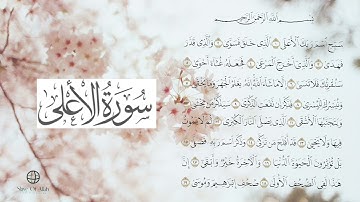 بسم الله الرحمن الرحيم
سَبِّحِ ٱسْمَ رَبِّكَ ٱلْأَعْلَى ۝ ٱلَّذِى خَلَقَ فَسَوَّىٰ ۝ وَٱلَّذِى قَدَّرَ
فَهَدَىٰ ۝ وَٱلَّذِىٓ أَخْرَجَ ٱلْمَرْعَىٰ ۝ فَجَعَلَهُۥ غُثَآءً أَحْوَىٰ ۝
سَنُقْرِئُكَ فَلَا تَنسَىٰٓ ۝ إِلَّا مَا شَآءَ ٱللَّهُ إِنَّهُۥ يَعْلَمُ ٱلْجَهْرَ وَمَا يَخْفَىٰ ۝
وَنُيَسِّرُكَ لِلْيُسْرَىٰ ۝ فَذَكِّرْ إِن نَّفَعَتِ ٱلذِّكْرَىٰ ۝ سَيَذَّكَّرُ مَن يَخْشَىٰ ۝
وَيَتَجَنَّبُهَا ٱلْأَشْقَى ۝ ٱلَّذِى يَصْلَى ٱلنَّارَ ٱلْكُبْرَىٰ ۝ ثُمَّ لَا يَمُوتُ
فِيهَا وَلَا يَحْيَىٰ ۝ قَدْ أَفْلَحَ مَن تَزَكَّىٰ ۝ وَذَكَرَ ٱسْمَ رَبِّهِۦ فَصَلَّىٰ ۝
بَلْ تُؤْثِرُونَ ٱلْحَيَوٰةَ ٱلدُّنْيَا ۝ وَٱلْءَاخِرَةُ خَيْرٌ وَأَبْقَىٰٓ ۝ إِنَّ
هَٰذَا لَفِى ٱلصُّحُفِ ٱلْأُولَىٰ ۝ صُحُفِ إِبْرَٰهِيمَ وَمُوسَىٰ ۝
سُورَةُ الأَعْلَى
Slave Of Allah